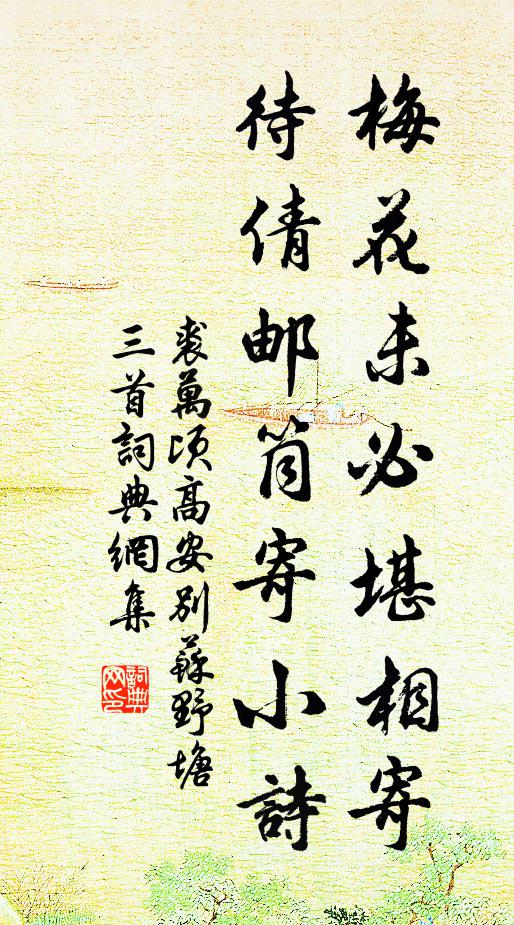 梅花未必堪相寄
待倩邮筒寄小詩
裘萬頃高安別蘇野塘
三首詞典網集
詞典
网印